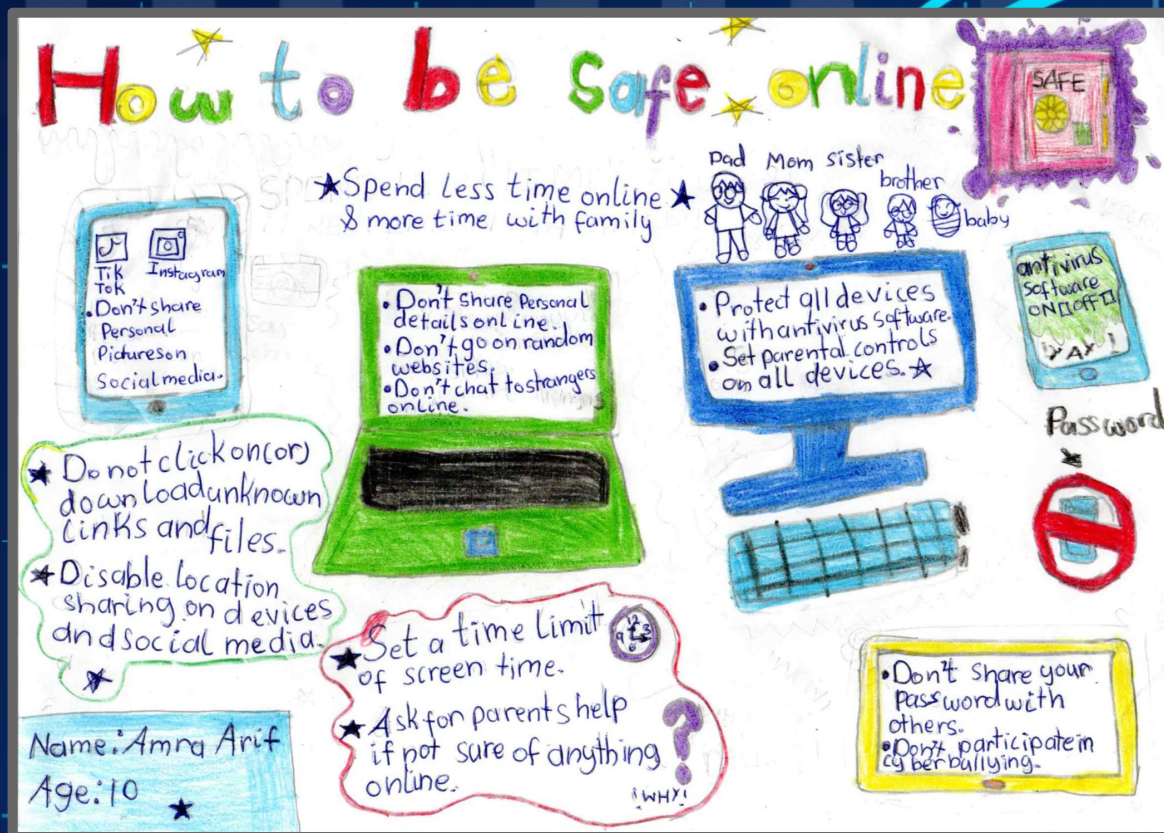 How to be safe online
SAFE
★Spend less time online★
& more time with family
Dad Mom sister
brother
baby
Tik
Tok
Instagram
•Don't share
Personal
Pictures on
Social media.
• Don't share Personal
details online.
• Don't go on random
websites.
• Don't chat to strangers
online.
• Protect all devices
with antivirus software.
• Set parental controls
on all devices.★
antivirus
software
ON OFF
YAY!
Password
★ Do not click on (or)
download unknown
links and files.
★Disable location
sharing on devices
and social media.
★ Set a time limit
of screen time.
12
9 3
6
★ Ask for parents help
if not sure of anything
online.
?
!WHY!
•Don't share your
password with
others.
•Don't participate in
cyber bullying.
Name: Amra Arif
Age: 10